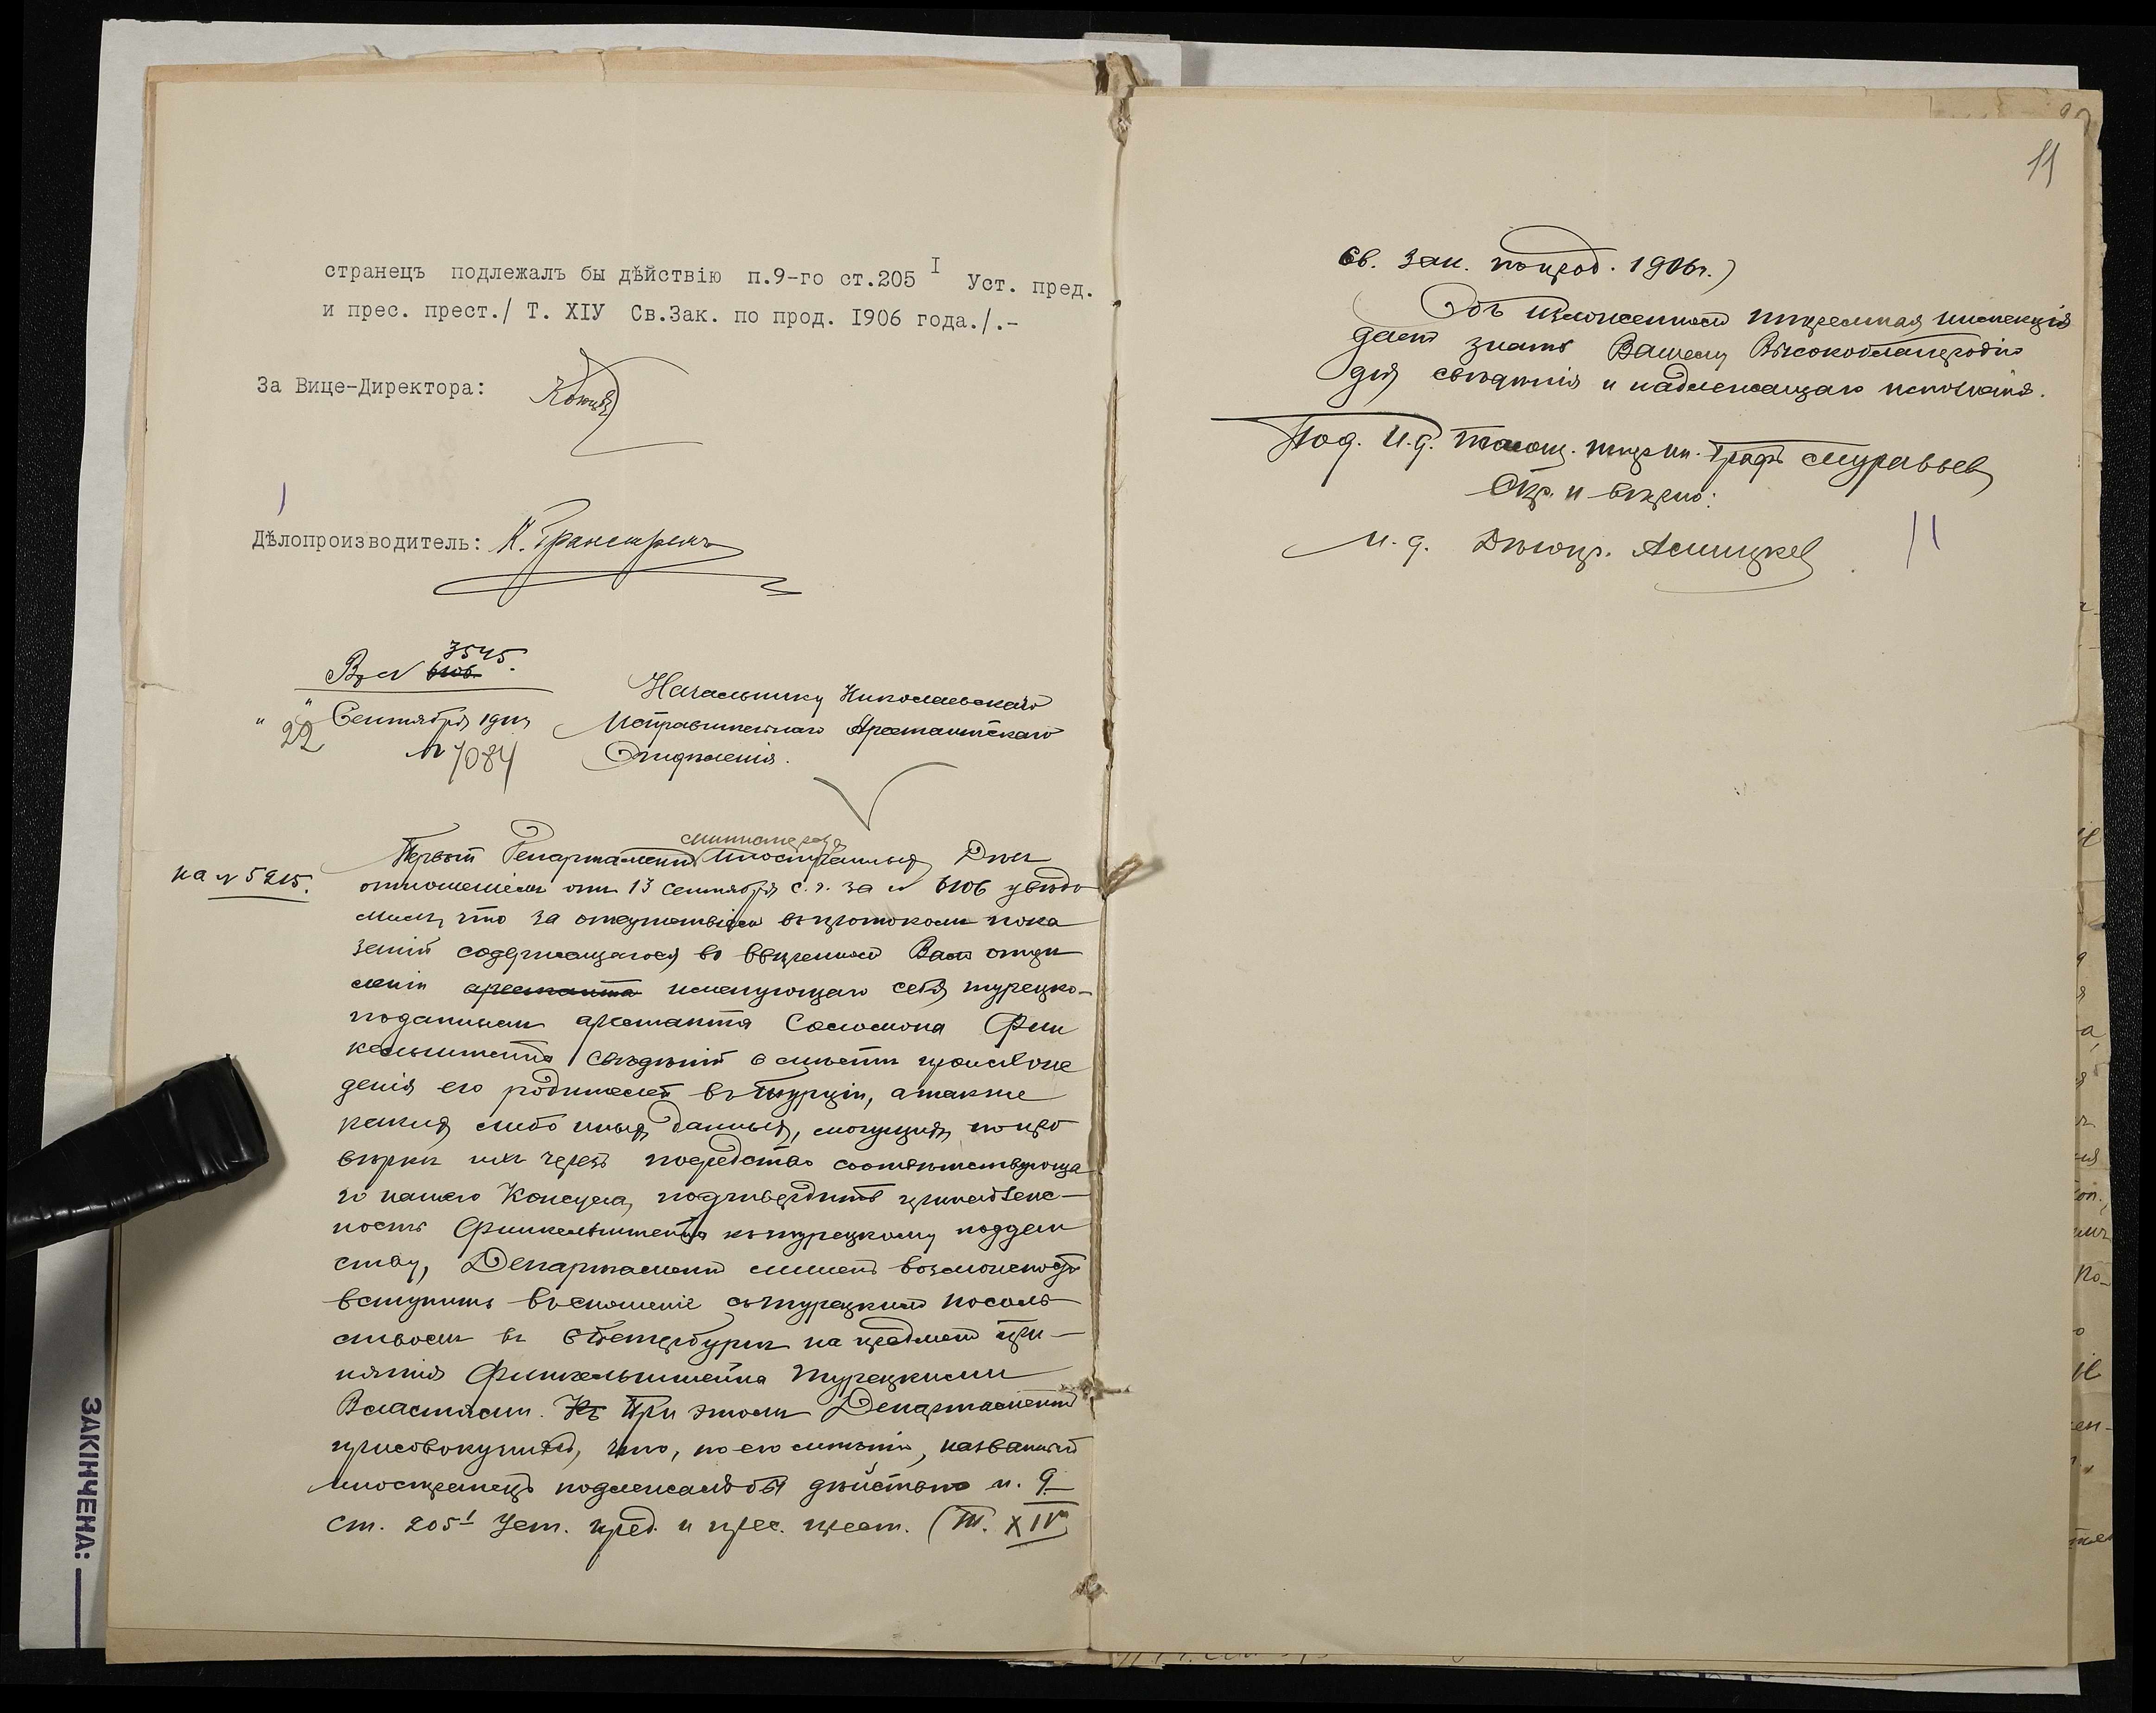 странецъ подлежалъ бы дѣйствію п.9-го ст.205 I Уст. пред.
и прес. прест./ Т. XIУ Св.Зак. по прод. I906 года./.-
За Вице-Директора:
Дѣлопроизводитель:
3545.
Вх №
"22" Сентября
№ 7084
Начальнику Николаевскаго
Исправительнаго Арестантскаго
Отдѣленія.
на № 5215.
министерства
Первый Департаментъ Иностранныхъ Дѣлъ
отношеніемъ отъ 13 сентября с.г. за № 6106 увѣдо
милъ, что за отсутствіемъ въ протоколѣ пока
заній содержащагося во ввѣренномъ Вамъ отдѣ
леніи арестанта именующаго себя турецко-
подданнымъ арестанта Соломона Фин
кельштейна свѣдѣній о мѣстѣ происхож
денія его родителей въ Турціи, а также
какихъ либо иныхъ данныхъ, могущихъ по про
вѣркѣ ихъ черезъ посредство соотвѣтствующа
го нашего Консула, подтвердить принадлеж-
ность Финкельштейна къ турецкому поддан
ству, Департаментъ лишенъ возможности
вступить въ сношеніе съ турецкимъ посоль
ствомъ въ С Петербургѣ на предметъ при-
нятія Финкельштейна турецкими
Властями. Къ При этомъ Департаментъ
присовокупилъ, что, по его мнѣнію, названный
иностранецъ подлежалъ бы дѣйствію п. 9
ст. 205¹ Уст. пред. и прес. прест. (Т. XIV
11
Св. Зак. по прод. 1906 г.)
Объ изложенномъ тюремная инспекція
даетъ знать Вашему Высокоблагородію
для свѣдѣнія и надлежащаго исполненія.
Под. И.д. Помощ. тюр. ин. Графъ Муравьевъ
Скр. и вѣрно:
И.д. Дѣлопр.
ЗАКІНЧЕНА: